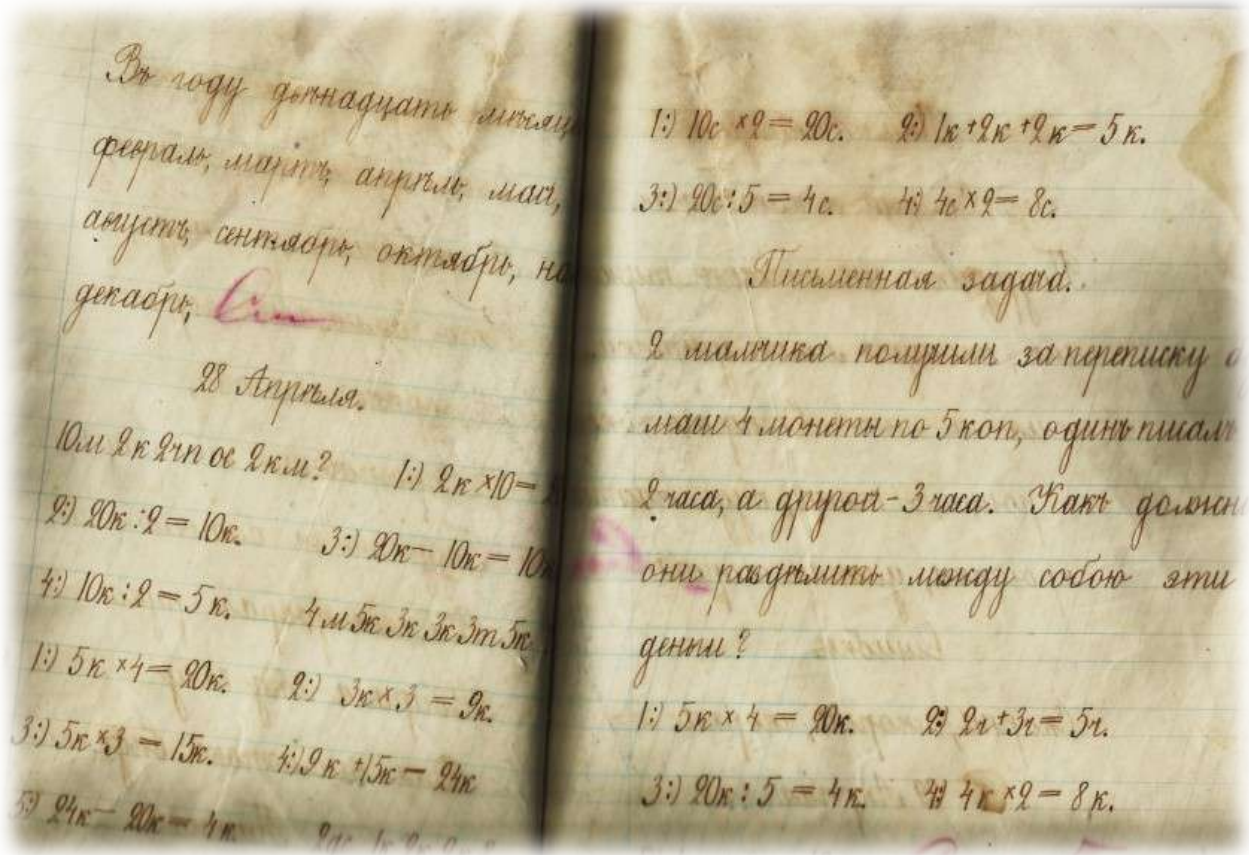 Въ году двѣнадцать мѣсяц
февраль, мартъ, апрѣль, май,
августъ, сентябрь, октябрь, но
декабрь,
28 Апрѣля.
10м 2к 2чп ос 2км? 1:) 2к × 10 =
2:) 20к : 2 = 10к. 3:) 20к – 10к = 10к
4:) 10к : 2 = 5к. 4м 5к 3к 3к 3т 5к
1:) 5к × 4 = 20к. 2:) 3к × 3 = 9к.
3:) 5к × 3 = 15к. 4:) 9к + 15к = 24к
5:) 24к – 20к = 4к.
1:) 10с × 2 = 20с. 2:) 1к + 2к + 2к = 5к.
3:) 20с : 5 = 4с. 4:) 4с × 2 = 8с.
Письменная задача.
2 мальчика получили за переписку
маш 4 монеты по 5 коп, одинъ писалъ
2 часа, а другой – 3 часа. Какъ должн
они раздѣлить между собою эти
деньги?
1:) 5к × 4 = 20к. 2:) 2ч + 3ч = 5ч.
3:) 20к : 5 = 4к. 4:) 4к × 2 = 8к.